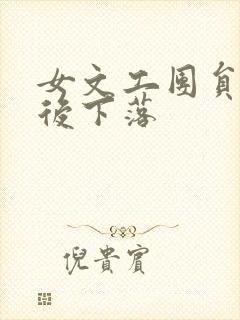 女文工團員
後下落
倪貴賓